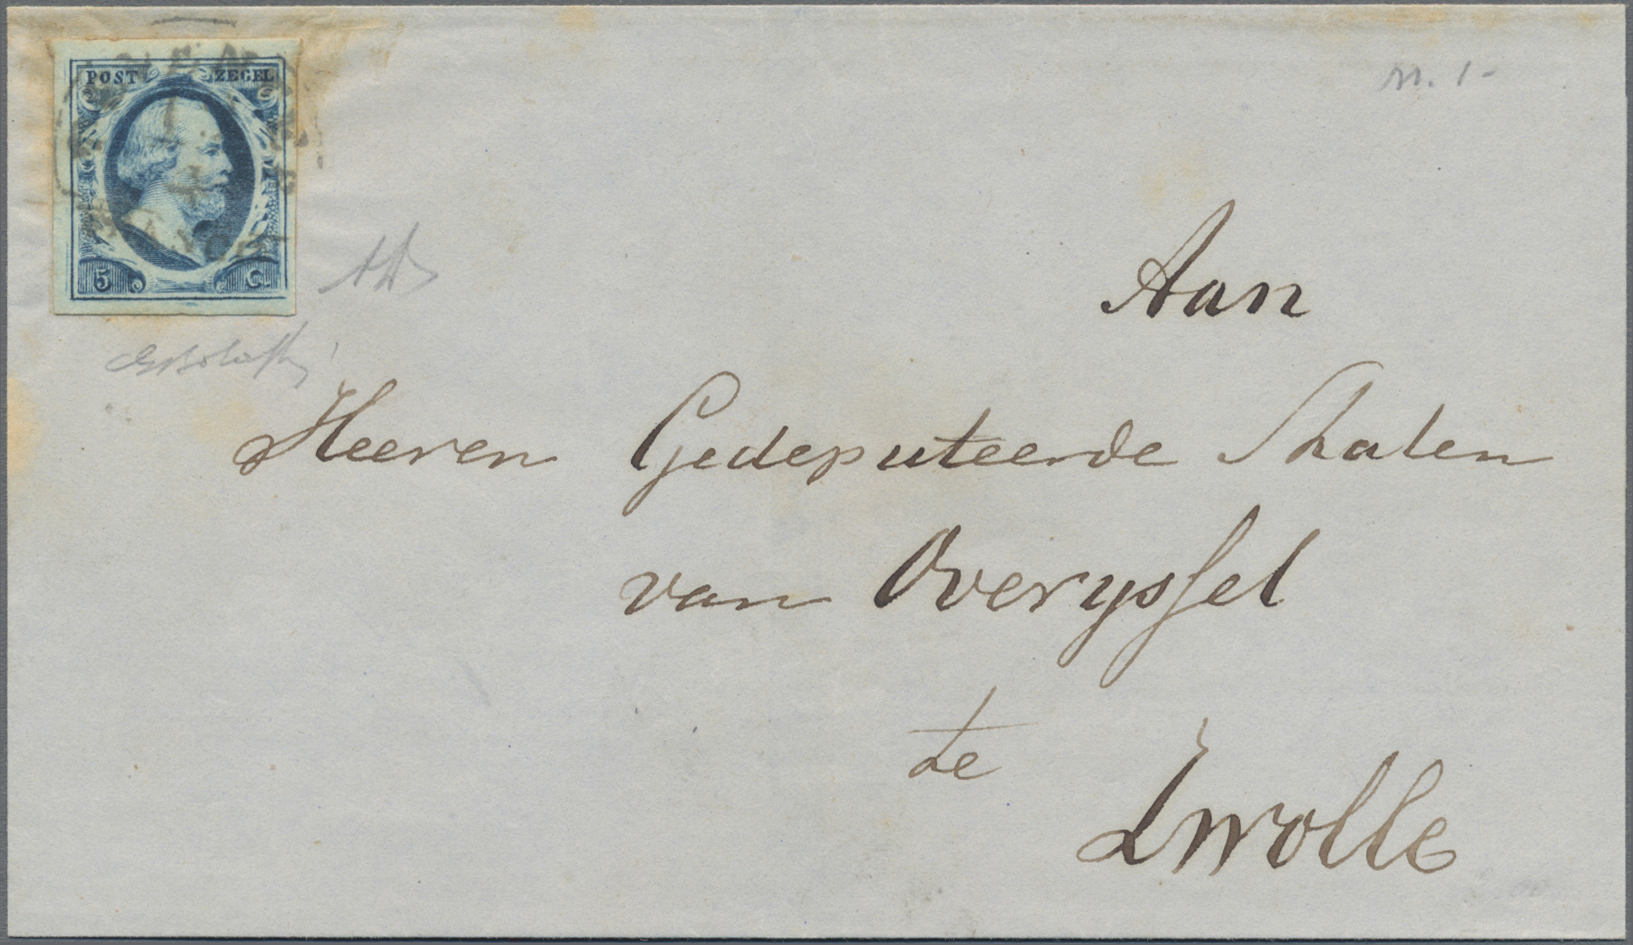 POST ZEGEL
5 Ct
N. 1-
Aan
Heeren Gedeputeerde Staten
van Overyssel
te
Zwolle